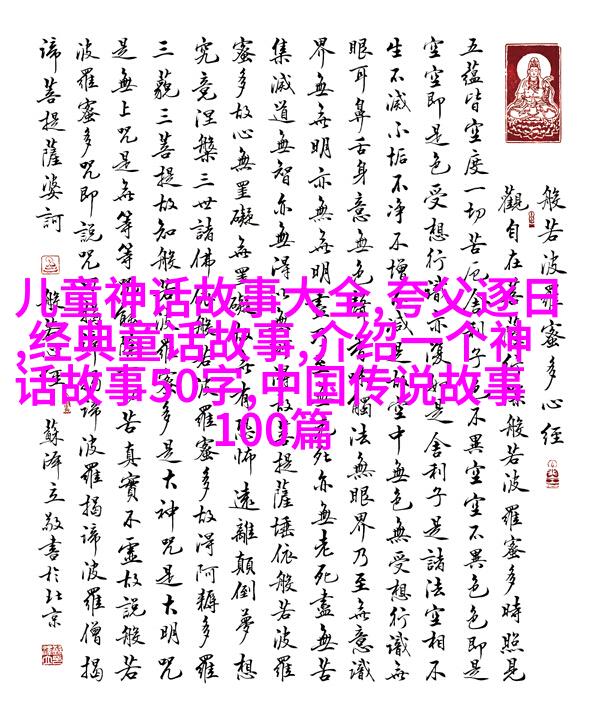 儿童神话故事大全,夸父逐日
,经典童话故事,介绍一个神
话故事50字,中国传说故事
100篇
般若波羅蜜多心經
觀自在菩薩行深般若波羅蜜多時照見
五蘊皆空度一切苦厄舍利子色不異空空不異色色即是
空空即是色受想行識亦復如是舍利子是諸法空相不
生不滅不垢不净不增不減是故空中無色無受想行識無
眼耳鼻舌身意無色聲香味觸法無眼界乃至無意識
界無無明亦無無明盡乃至無老死亦無老死盡無苦
集滅道無智亦無得以無所得故菩提薩埵依般若波羅
蜜多故心無罣礙無罣礙故無有恐怖遠離顛倒夢想
究竟涅槃三世諸佛依般若波羅蜜多故得阿耨多羅
三藐三菩提故知般若波羅蜜多是大神咒是大明咒
是無上咒是無等等咒能除一切苦真實不虛故說般若
波羅蜜多咒即說咒曰揭諦揭諦波羅揭諦波羅僧揭
諦菩提薩婆訶
般若心經
蘇澤立敬書於北京